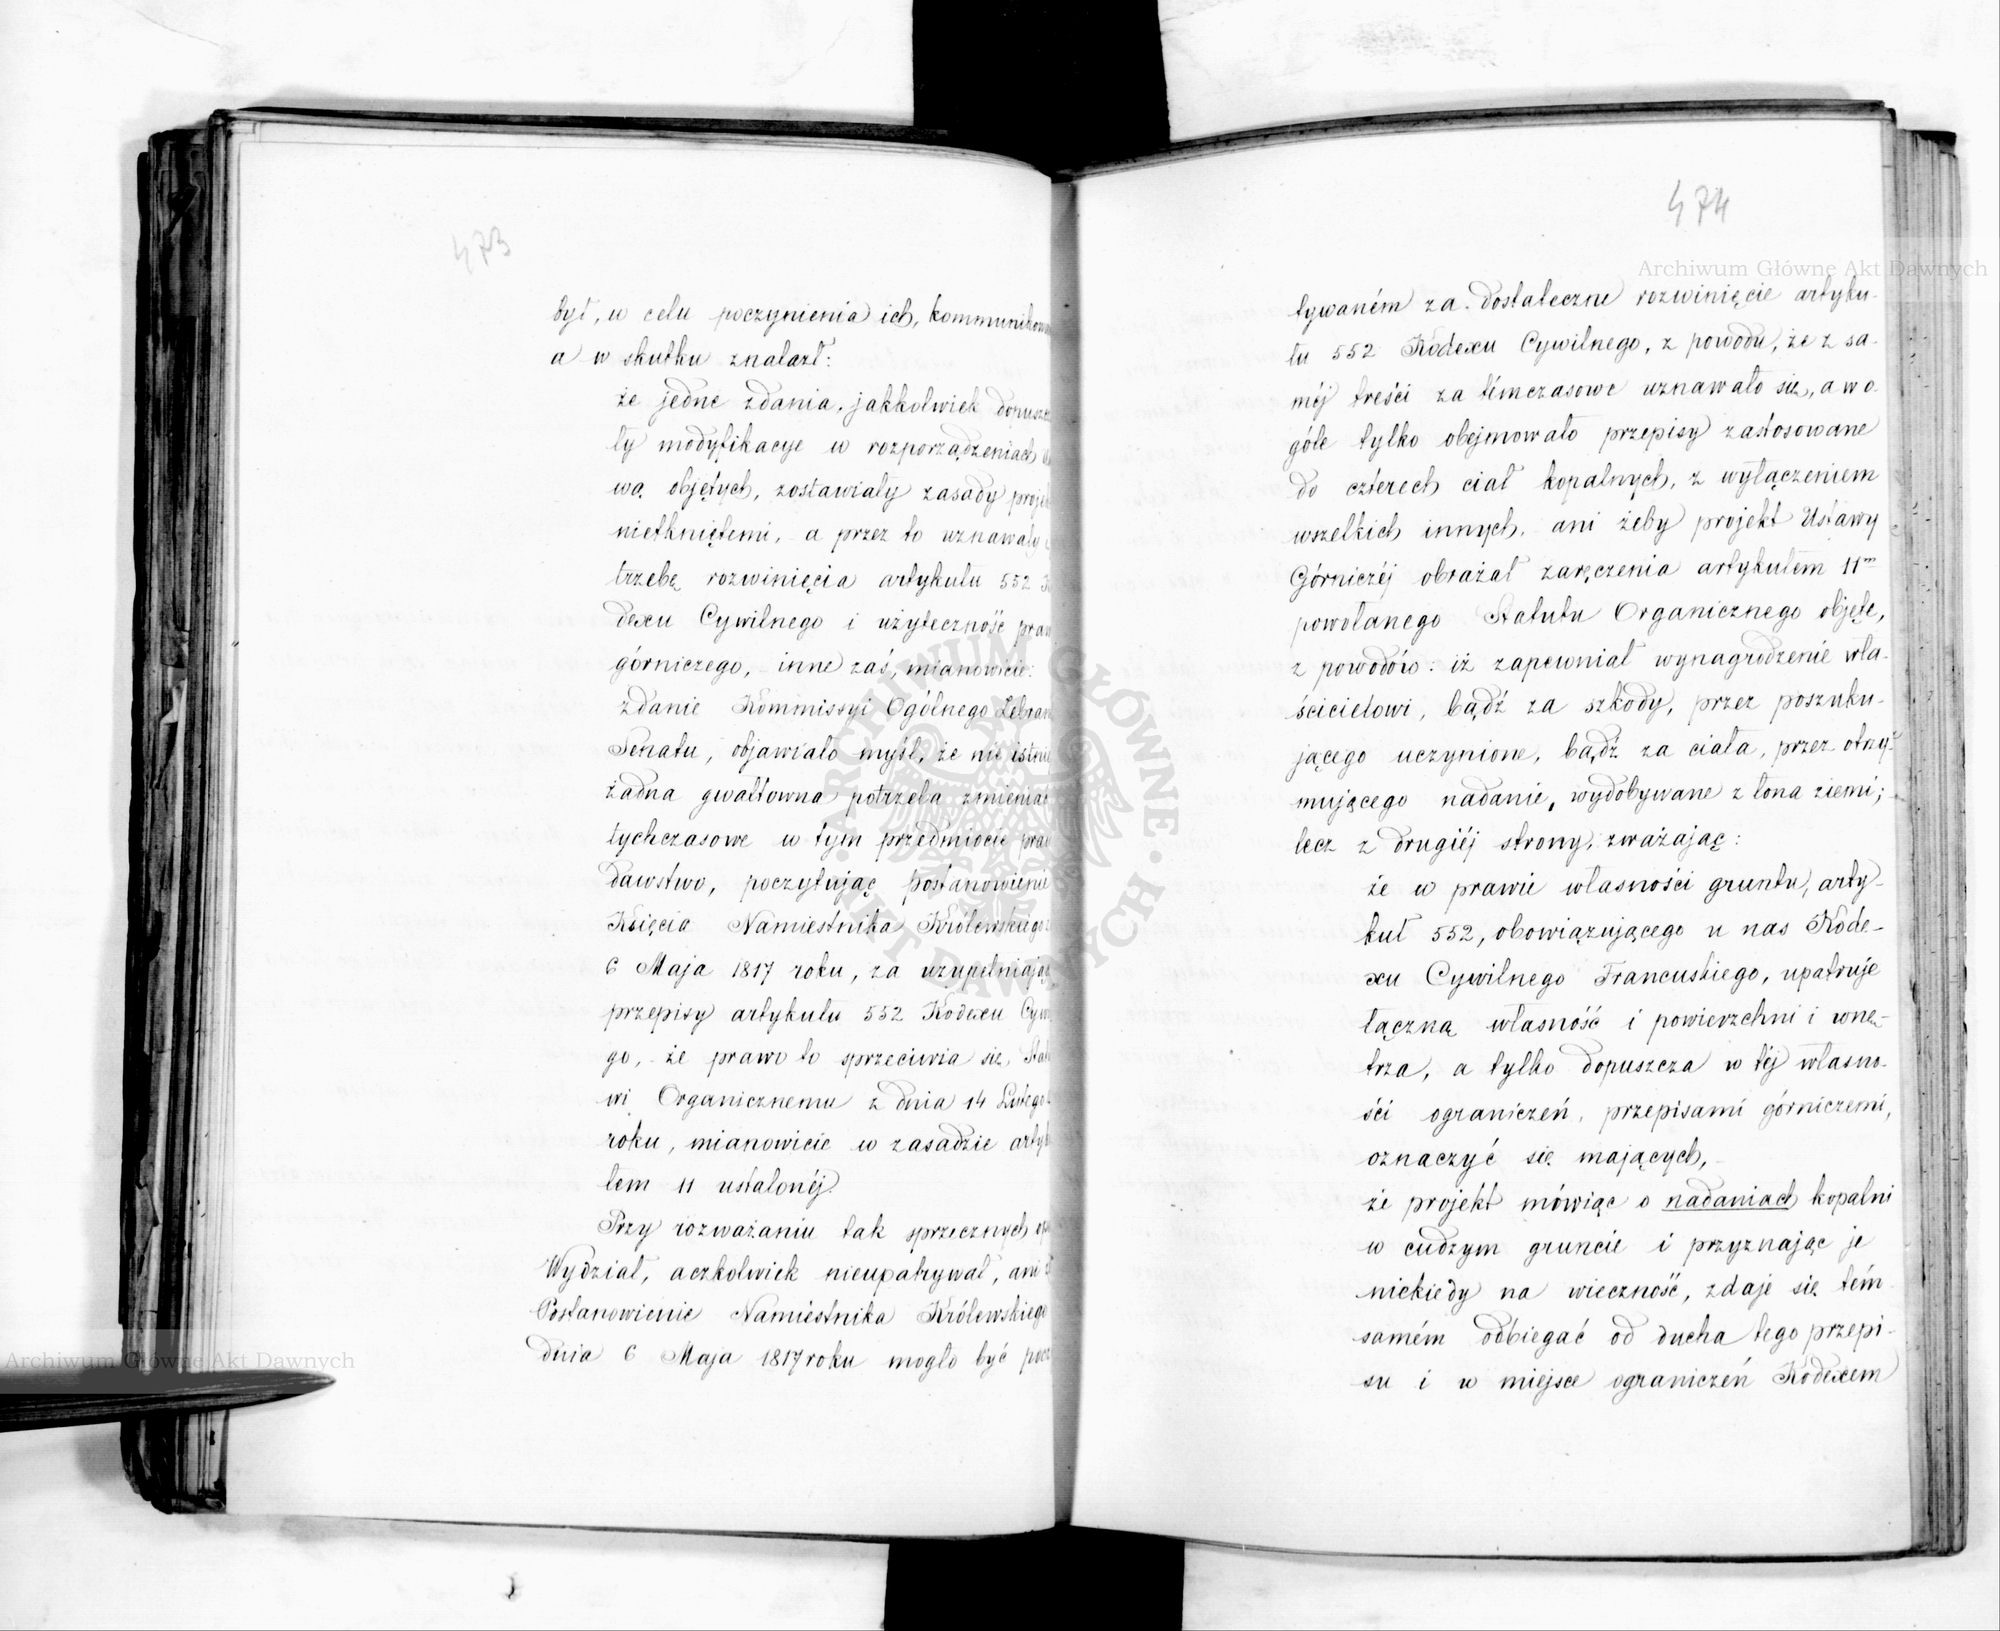 473
był, w celu poczynienia ich, kommunikow
a w skutku znalazł:
że jedne zdania, jakkolwiek dopuszcz
ły modyfikacye w rozporządzeniach
wą objętych, zostawiały zasady proje
nietkniętemi, a przez to uznawały
trzebę rozwinięcia artykułu 552
dexu Cywilnego i użyteczność praw
górniczego, – inne zaś, mianowicie:
zdanie Kommissyi Ogólnego Zebran
Senatu, objawiało myśl, że nie istnie
żadna gwałtowna potrzeba zmieniać
tychczasowe w tym przedmiocie praw
dawstwo, poczytując postanowienie
Księcia Namiestnika Królewskiego
6 Maja 1817 roku, za uzupełniając
przepisy artykułu 552 Kodexu Cyw
go, – że prawo to sprzeciwia się, Stat
wi Organicznemu z dnia 14 Lutego
roku, mianowicie w zasadzie arty
łem 11 ustalonéj.
Przy rozważaniu tak sprzecznych
Wydział, aczkolwiek nieupatrywał, ani
Postanowienie Namiéstnika Królewskiego
dnia 6 Maja 1817 roku mogło być pocz
474
tywaném za dostateczne rozwinięcie artyku-
łu 552 Kodexu Cywilnego, z powodu, że z sa-
méj treści za témczasowe uznawało się, a wo-
góle tylko obejmowało przepisy zastosowane
do czterech ciał kopalnych, z wyłączeniem
wszelkich innych, ani żeby projekt Ustawy
Górniczéj obrażał zaręczenia artykułem 11m
powołanego Statutu Organicznego objęte,
z powodów: iż zapewniał wynagrodzenie wła-
ścicielowi, bądź za szkody, przez poszuku-
jącego uczynione, bądź za ciała, przez otrzy-
mującego nadanie, wydobywane z łona ziemi; –
lecz z drugiéj strony, zważając:
że w prawie własności gruntu, arty-
kuł 552, obowiązującego u nas Kode-
xu Cywilnego Francuskiego, upatruje
łączną własność i powierzchni i wnę-
trza, a tylko dopuszcza w téj własno-
ści ograniczeń, przepisami górniczemi,
oznaczyć się mających, –
że projekt mówiąc o nadaniach kopalni
w cudzym gruncie i przyznając je
niekiedy na wieczność, zdaje się tém
samém odbiegać od ducha tego przepi-
su i w miejsce ograniczeń Kodexem
Archiwum Główne Akt Dawnych
Archiwum Główne Akt Dawnych
ARCHIWUM GŁÓWNE · AKT DAWNYCH ·